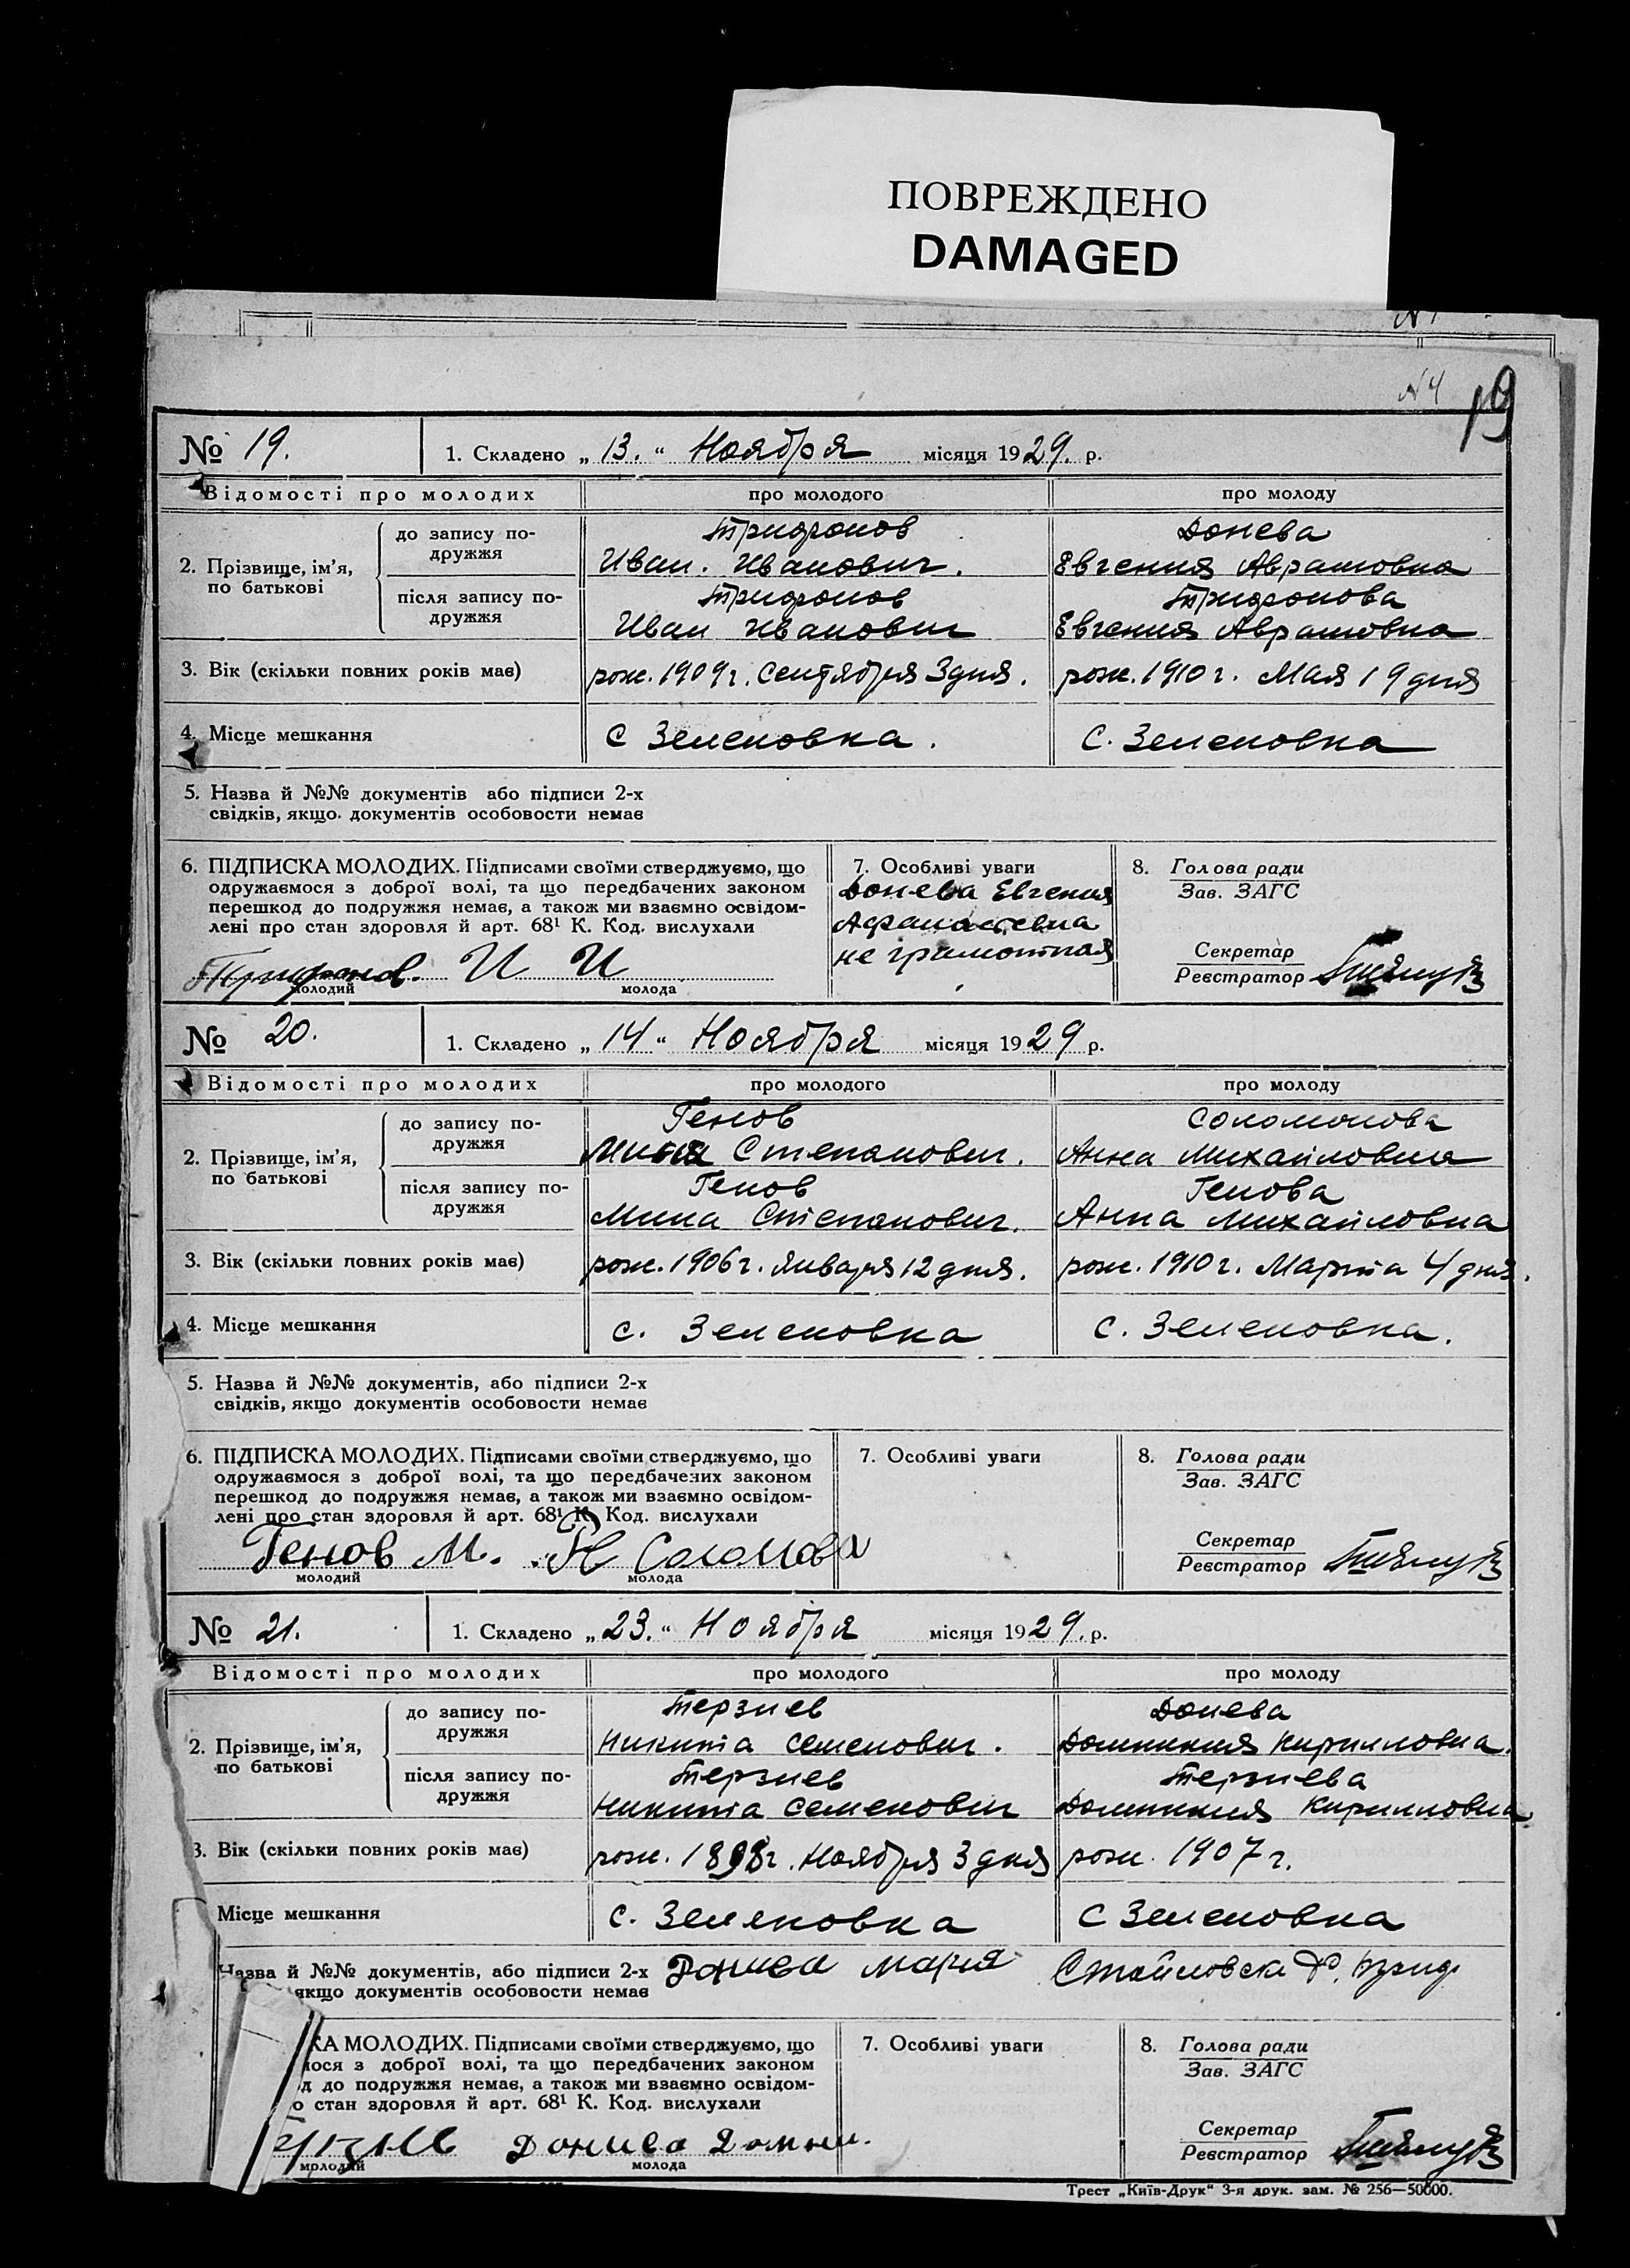 ПОВРЕЖДЕНО
DAMAGED
N 4 19
№ 19. 1. Складено „ 13. “ Ноября місяця 1929. р.
Відомості про молодих про молодого про молоду
2. Прізвище, ім’я, по батькові
до запису по-дружжя
Трифонов
Иван. Иванович.
Донева
Евгения Аврамовна
після запису по-дружжя
Трифонов
Иван Иванович
Трифонова
Евгения Аврамовна
3. Вік (скільки повних років має) рож. 1909 г. Сентября 3 дня. рож. 1910 г. Мая 19 дня
4. Місце мешкання с Зеленовка. с. Зеленовка
5. Назва й №№ документів або підписи 2-х
свідків, якщо. документів особовости немає
6. ПІДПИСКА МОЛОДИХ. Підписами своїми стверджуємо, що
одружаємося з доброї волі, та що передбачених законом
перешкод до подружжя немає, а також ми взаємно освідом-
лені про стан здоровля й арт. 68¹ К. Код. вислухали
Трифонов. И И
молодий молода
7. Особливі уваги
Донева Евгения
Афанасевна
не грамотная
8. Голова ради
Зав. ЗАГС
Секретар
Реєстратор
№ 20. 1. Складено „ 14 “ Ноября місяця 1929 р.
Відомості про молодих про молодого про молоду
2. Прізвище, ім’я, по батькові
до запису по-дружжя
Генов
Мина Степанович.
Соломонова
Анна Михайловна
після запису по-дружжя
Генов
Мина Степанович.
Генова
Анна Михайловна
3. Вік (скільки повних років має) рож. 1906 г. Января 12 дня. рож. 1910 г. Марта 4 дня.
4. Місце мешкання с. Зеленовка с. Зеленовка.
5. Назва й №№ документів, або підписи 2-х
свідків, якщо документів особовости немає
6. ПІДПИСКА МОЛОДИХ. Підписами своїми стверджуємо, що
одружаємося з доброї волі, та що передбачених законом
перешкод до подружжя немає, а також ми взаємно освідом-
лені про стан здоровля й арт. 68¹ К. Код. вислухали
Генов М.
молодий молода
7. Особливі уваги
8. Голова ради
Зав. ЗАГС
Секретар
Реєстратор
№ 21. 1. Складено „ 23. “ Ноября місяця 1929. р.
Відомості про молодих про молодого про молоду
2. Прізвище, ім’я, по батькові
до запису по-дружжя
Терзиев
Никита Семенович.
Донева
Домникия Кирилловна.
після запису по-дружжя
Терзиев
Никита Семенович
Терзиева
Домникия Кирилловна
3. Вік (скільки повних років має) рож. 1898 г. Ноября 3 дня рож. 1907 г.
Місце мешкання с. Зеленовка с Зеленовка
Назва й №№ документів, або підписи 2-х Мария
якщо документів особовости немає
КА МОЛОДИХ. Підписами своїми стверджуємо, що
ося з доброї волі, та що передбачених законом
д до подружжя немає, а також ми взаємно освідом-
о стан здоровля й арт. 68¹ К. Код. вислухали
молодий молода
7. Особливі уваги
8. Голова ради
Зав. ЗАГС
Секретар
Реєстратор
Трест „Київ-Друк“ 3-я друк. зам. № 256—50000.